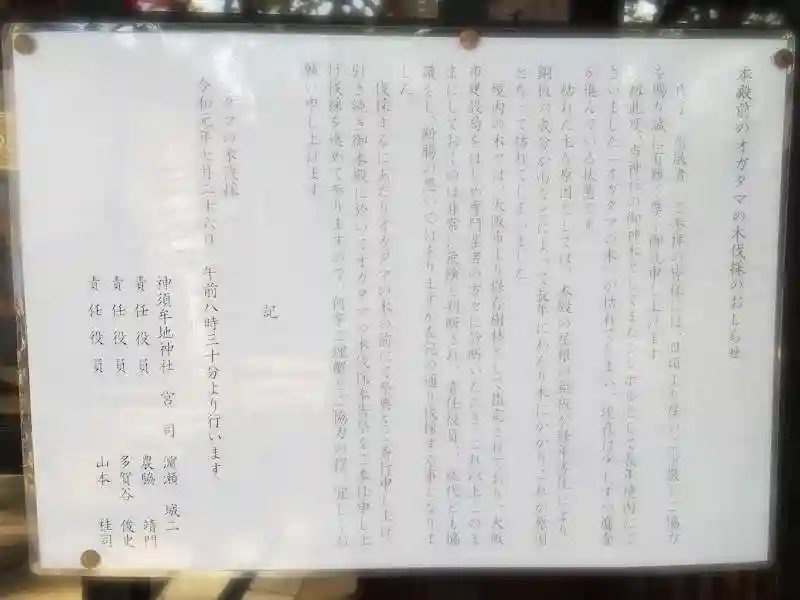 本殿前のオガタマの木伐採のおしらせ
氏子、崇敬者、ご参拝の皆様には、日頃より厚いご崇敬とご協力
を賜り誠に有難く厚く御礼申し上げます
此度、当神社の御神木としてまたシンボルとして長年境内にご
ざいました「オガタマの木」が枯れてしまい、現在は少しずつ腐食
が進んでいる状態です
枯れた主な原因としては、本殿の屋根の銅板が経年劣化により、
銅板の成分が雨などによって長年にわたり木にかかりこれが原因
となって枯れてしまいました
境内の木々は、大阪市より保存樹林として指定されており、大阪
市建設局をはじめ専門業者の方々に診断いただき、これ以上このま
まにしておくのは非常に危険と判断され、責任役員、総代とも協
議をし、断腸の思いではありますが左記の通り伐採する事となりま
した
伐採するにあたりオガタマの木の前にて祭典をご斎行申し上げ、
引き続き御本殿に於いてオガタマの木伐採奉告祭をご奉仕申し上
げ伐採を進めて参りますので、何卒ご理解とご協力の程、宜しくお
願い申し上げます
記
オガタマの木伐採
令和元年七月二十六日 午前八時三十分より行います
神須牟地神社 宮司 濵瀬 城二
責任役員 農脇 靖門
責任役員 多賀谷 俊史
責任役員 山本 桂司